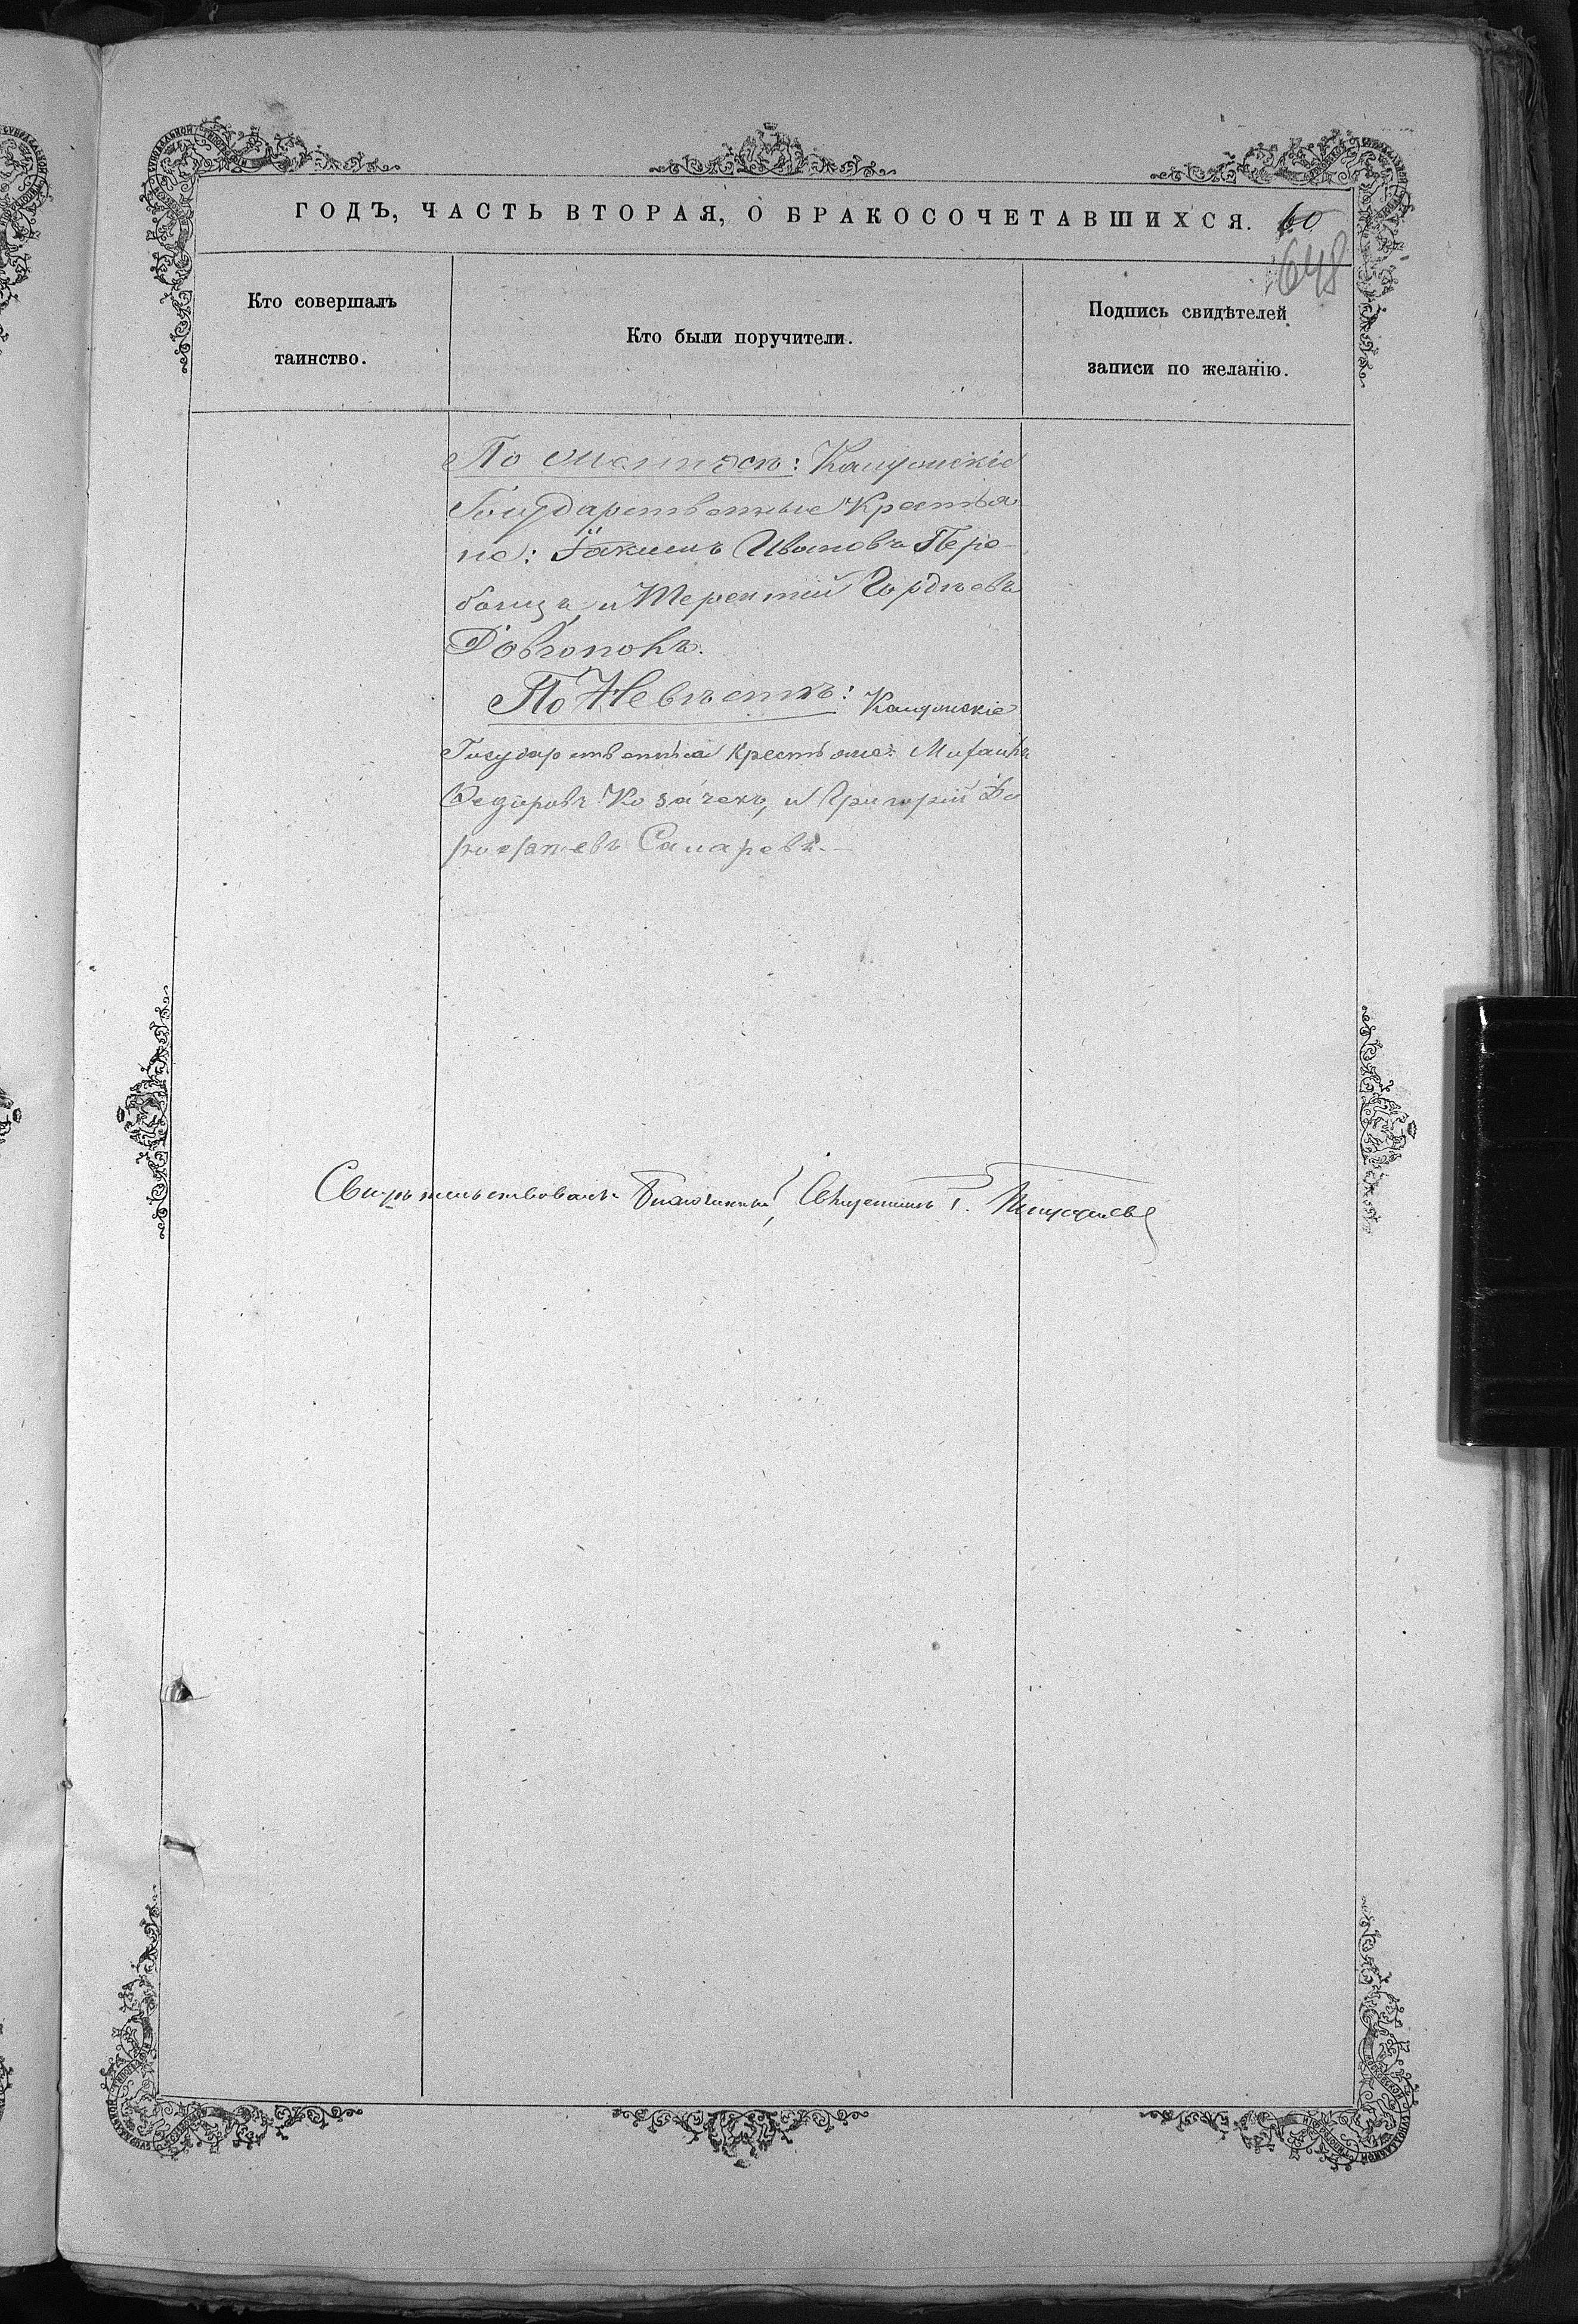 ГОДЪ, ЧАСТЬ ВТОРАЯ, О БРАКОСОЧЕТАВШИХСЯ. 60
648
Кто совершалъ
таинство.
Кто были поручители.
Подпись свидѣтелей
записи по желанію.
По
Государственные Крестья
не: Іакимъ Ивановъ Пере-
и Терентій Гордѣевъ
Довгополъ.
По Невѣстѣ:
Государственніе крестьяне:
Федоровъ Козачекъ, и Григорій До
рофѣевъ Самаровъ.
Свидѣтельствовалъ Благочинный, Священникъ Г.